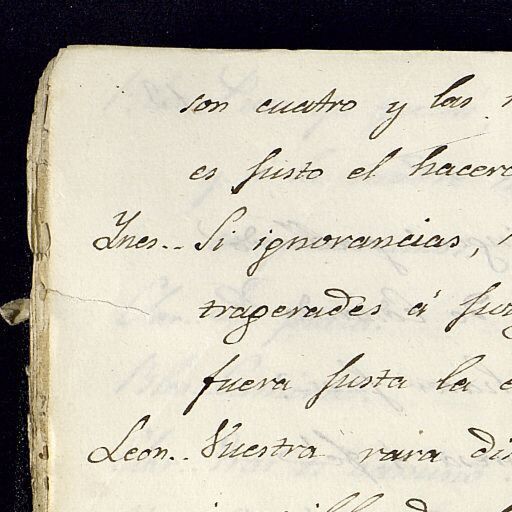 son cuatro y las
es justo el hacer
Ynes.. Si ignorancias,
tragerades á
fuera justa la
Leon.. Vuestra rara